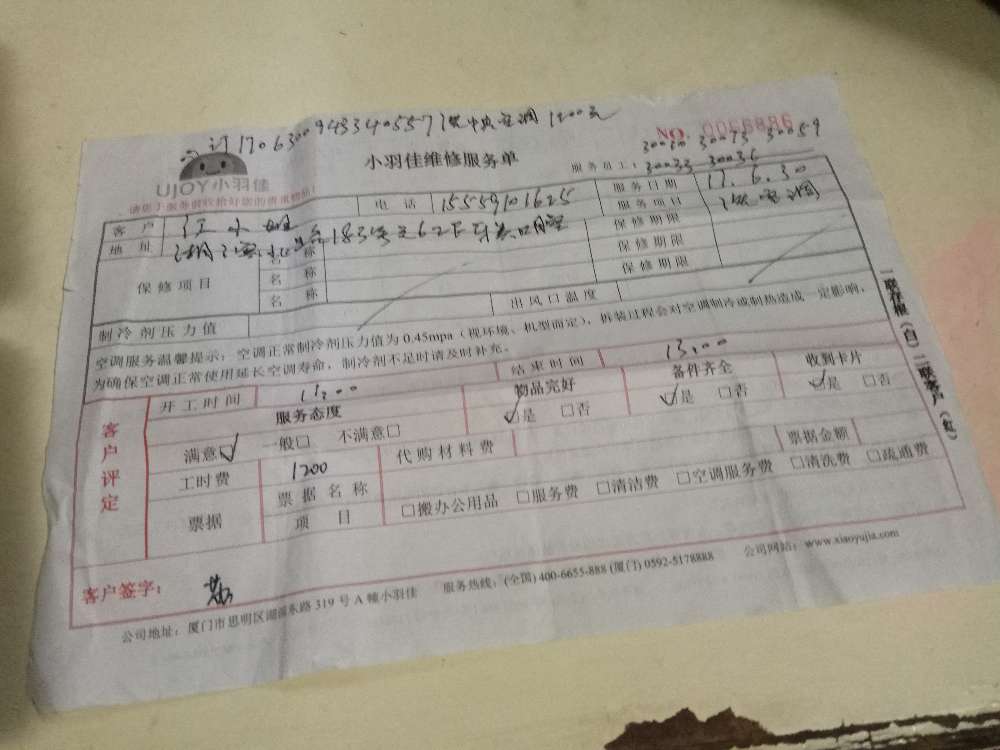 170630094334055713洗中央空调 1200元
NO. 0056886
UJOY小羽佳
小羽佳维修服务单
服务员工: 30030 30073 30059
30033 30036
请您于服务前收拾好您的贵重物品!
客户 江小姐 电话 15559101625 服务日期 17.6.30
地址 183号之6 服务项目 洗空调
保修项目 名称 保修期限
名称 保修期限
名称 保修期限
制冷剂压力值 出风口温度
空调服务温馨提示: 空调正常制冷剂压力值为0.45mpa (视环境、机型而定), 拆装过程会对空调制冷或制热造成一定影响,
为确保空调正常使用延长空调寿命, 制冷剂不足时请及时补充。
客户评定
开工时间 结束时间 13:00
服务态度 物品完好 备件齐全 收到卡片
满意☑ 一般□ 不满意□ ☑是 □否 ☑是 □否 ☑是 □否
工时费 1200 代购材料费 票据金额
票据 票据名称
项目 □搬办公用品 □服务费 □清洁费 □空调服务费 □清洗费 □疏通费
客户签字:
公司地址: 厦门市思明区湖滨东路319号A幢小羽佳 服务热线: (全国) 400-6655-888 (厦门) 0592-5178888 公司网站: www.xiaoyujia.com
一联存根(白)二联客户(红)